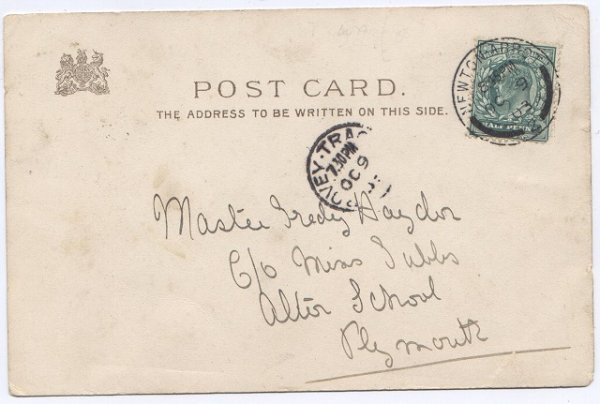 POST CARD.
THE ADDRESS TO BE WRITTEN ON THIS SIDE.
NEWTON-ABBOT
OC 9
03
HALF PENNY
OVEY·TRAC
7.30PM
OC 9
Master Fredy Haydon
C/o Miss Tubbs
Alton School
Plymouth